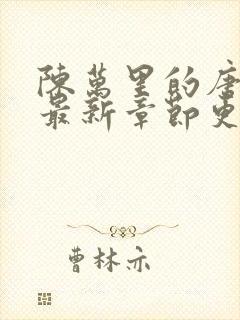 陳萬里的唐
最新章節更
曹林亦